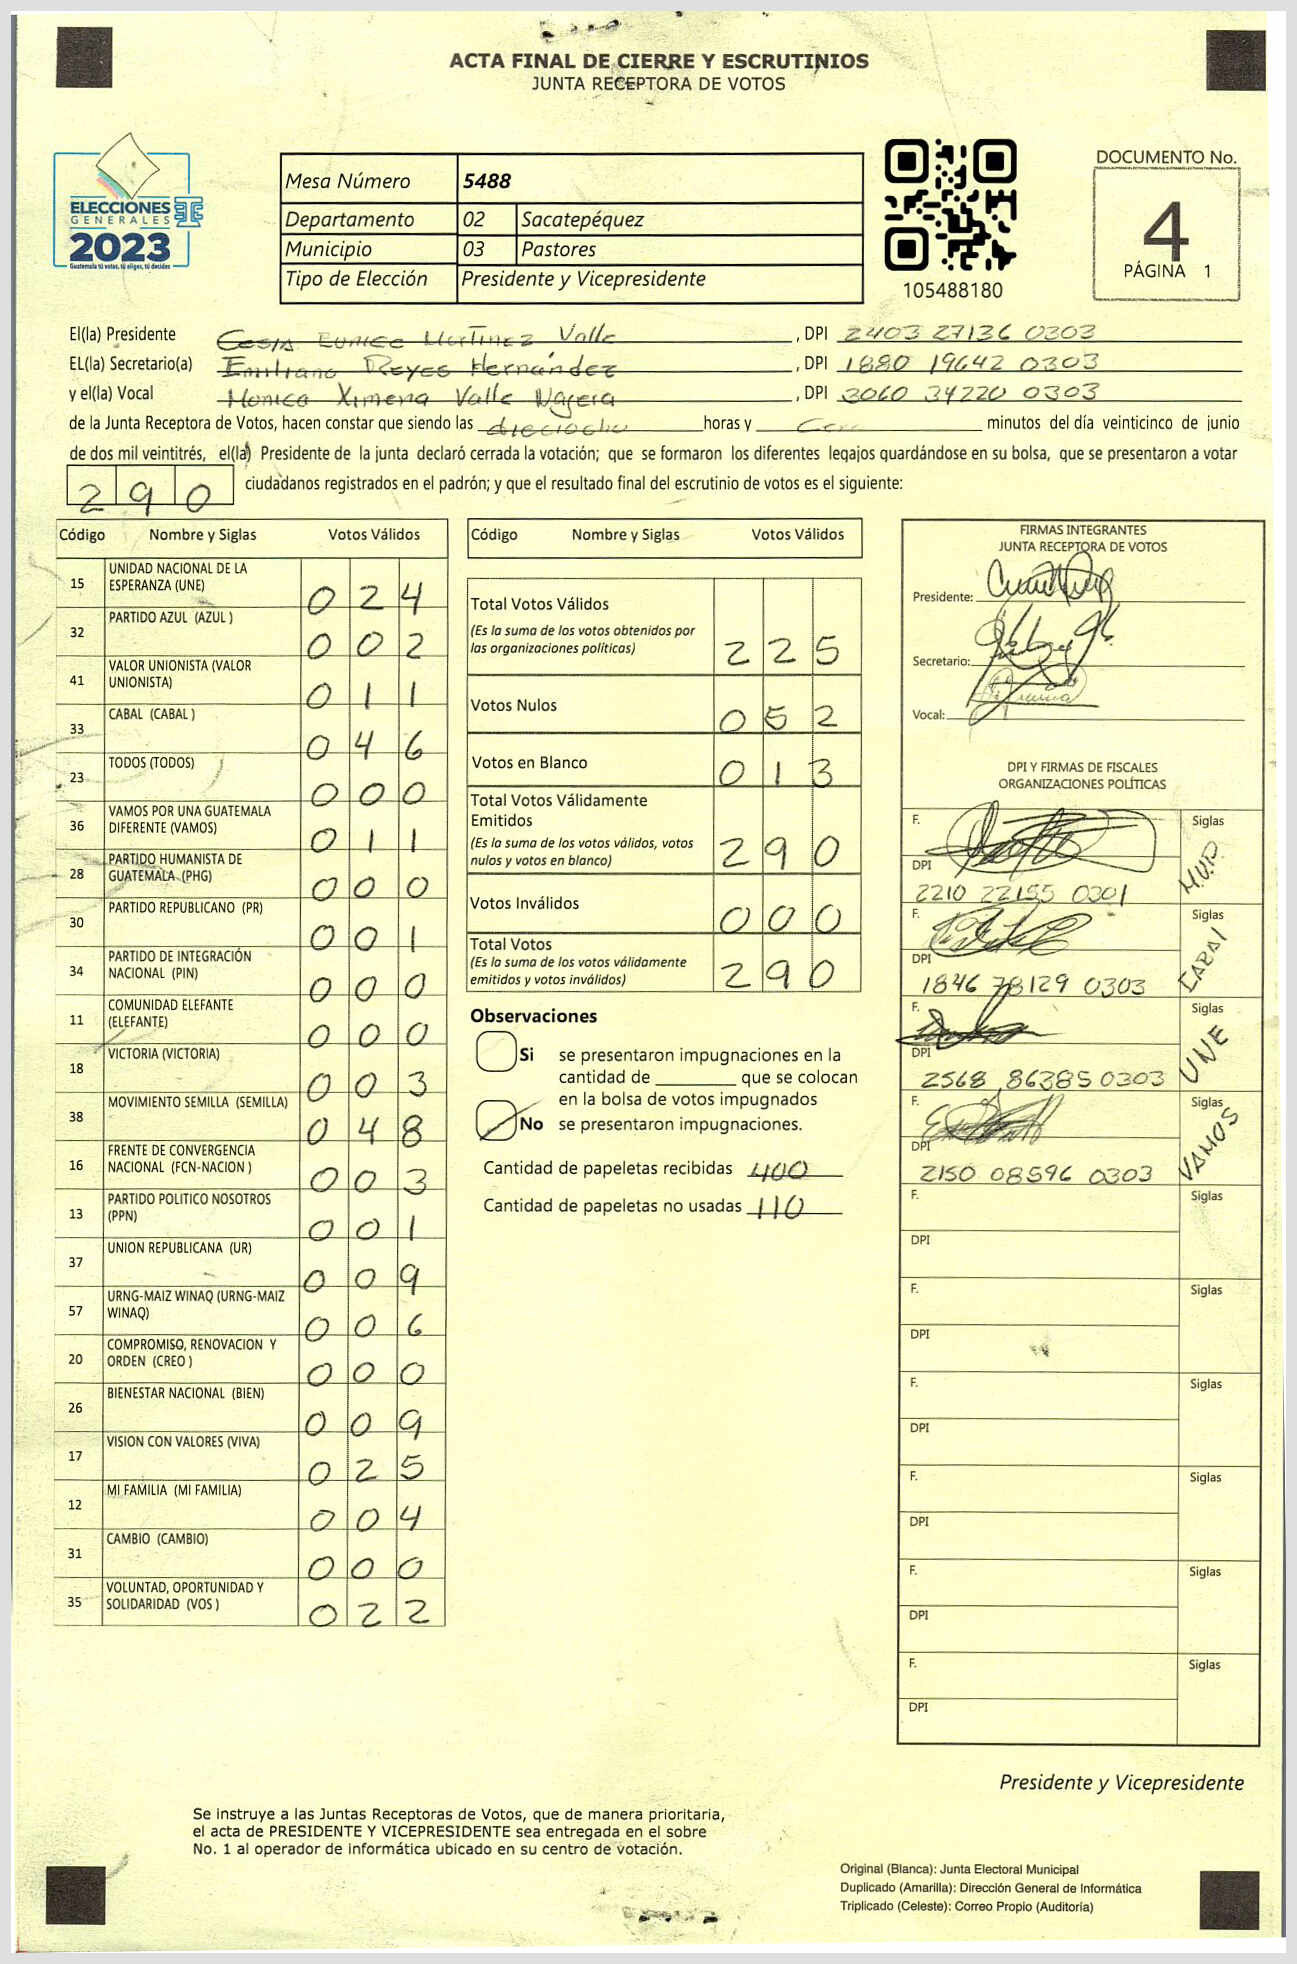 ACTA FINAL DE CIERRE Y ESCRUTINIOS
JUNTA RECEPTORA DE VOTOS
ELECCIONES
GENERALES
2023
Guatemala tú votas, tú eliges, tú decides
Mesa Número 5488
Departamento 02 Sacatepéquez
Municipio 03 Pastores
Tipo de Elección Presidente y Vicepresidente
105488180
DOCUMENTO No.
4
PÁGINA 1
El(la) Presidente Cesia Eunice Martínez Valle , DPI 2403 27136 0303
EL(la) Secretario(a) Emiliano Reyes Hernández , DPI 1880 19642 0303
y el(la) Vocal Monica Ximena Valle Najera , DPI 3060 34220 0303
de la Junta Receptora de Votos, hacen constar que siendo las dieciocho horas y minutos del día veinticinco de junio
de dos mil veintitrés, el(la) Presidente de la junta declaró cerrada la votación; que se formaron los diferentes legajos guardándose en su bolsa, que se presentaron a votar
290 ciudadanos registrados en el padrón; y que el resultado final del escrutinio de votos es el siguiente:
Código Nombre y Siglas Votos Válidos
15 UNIDAD NACIONAL DE LA
ESPERANZA (UNE) 024
32 PARTIDO AZUL (AZUL ) 002
41 VALOR UNIONISTA (VALOR
UNIONISTA) 011
33 CABAL (CABAL ) 046
23 TODOS (TODOS) 000
36 VAMOS POR UNA GUATEMALA
DIFERENTE (VAMOS) 011
28 PARTIDO HUMANISTA DE
GUATEMALA (PHG) 000
30 PARTIDO REPUBLICANO (PR) 001
34 PARTIDO DE INTEGRACIÓN
NACIONAL (PIN) 000
11 COMUNIDAD ELEFANTE
(ELEFANTE) 000
18 VICTORIA (VICTORIA) 003
38 MOVIMIENTO SEMILLA (SEMILLA) 048
16 FRENTE DE CONVERGENCIA
NACIONAL (FCN-NACION ) 003
13 PARTIDO POLITICO NOSOTROS
(PPN) 001
37 UNION REPUBLICANA (UR) 009
57 URNG-MAIZ WINAQ (URNG-MAIZ
WINAQ) 006
20 COMPROMISO, RENOVACION Y
ORDEN (CREO ) 000
26 BIENESTAR NACIONAL (BIEN) 009
17 VISION CON VALORES (VIVA) 025
12 MI FAMILIA (MI FAMILIA) 004
31 CAMBIO (CAMBIO) 000
35 VOLUNTAD, OPORTUNIDAD Y
SOLIDARIDAD (VOS ) 022
Código Nombre y Siglas Votos Válidos
Total Votos Válidos
(Es la suma de los votos obtenidos por
las organizaciones políticas) 225
Votos Nulos 052
Votos en Blanco 013
Total Votos Válidamente
Emitidos
(Es la suma de los votos válidos, votos
nulos y votos en blanco) 290
Votos Inválidos 000
Total Votos
(Es la suma de los votos válidamente
emitidos y votos inválidos) 290
Observaciones
Si se presentaron impugnaciones en la
cantidad de ________ que se colocan
en la bolsa de votos impugnados
No se presentaron impugnaciones.
Cantidad de papeletas recibidas 400
Cantidad de papeletas no usadas 110
FIRMAS INTEGRANTES
JUNTA RECEPTORA DE VOTOS
Presidente:
Secretario:
Vocal:
DPI Y FIRMAS DE FISCALES
ORGANIZACIONES POLÍTICAS
F. Siglas
DPI M.V.P.
2210 22155 0301
F. Siglas
DPI CABAL
1846 78129 0303
F. Siglas
DPI UNE
2568 86385 0303
F. Siglas
DPI VAMOS
2150 08596 0303
F. Siglas
DPI
F. Siglas
DPI
F. Siglas
DPI
F. Siglas
DPI
F. Siglas
DPI
F. Siglas
DPI
Presidente y Vicepresidente
Se instruye a las Juntas Receptoras de Votos, que de manera prioritaria,
el acta de PRESIDENTE Y VICEPRESIDENTE sea entregada en el sobre
No. 1 al operador de informática ubicado en su centro de votación.
Original (Blanca): Junta Electoral Municipal
Duplicado (Amarilla): Dirección General de Informática
Triplicado (Celeste): Correo Propio (Auditoría)